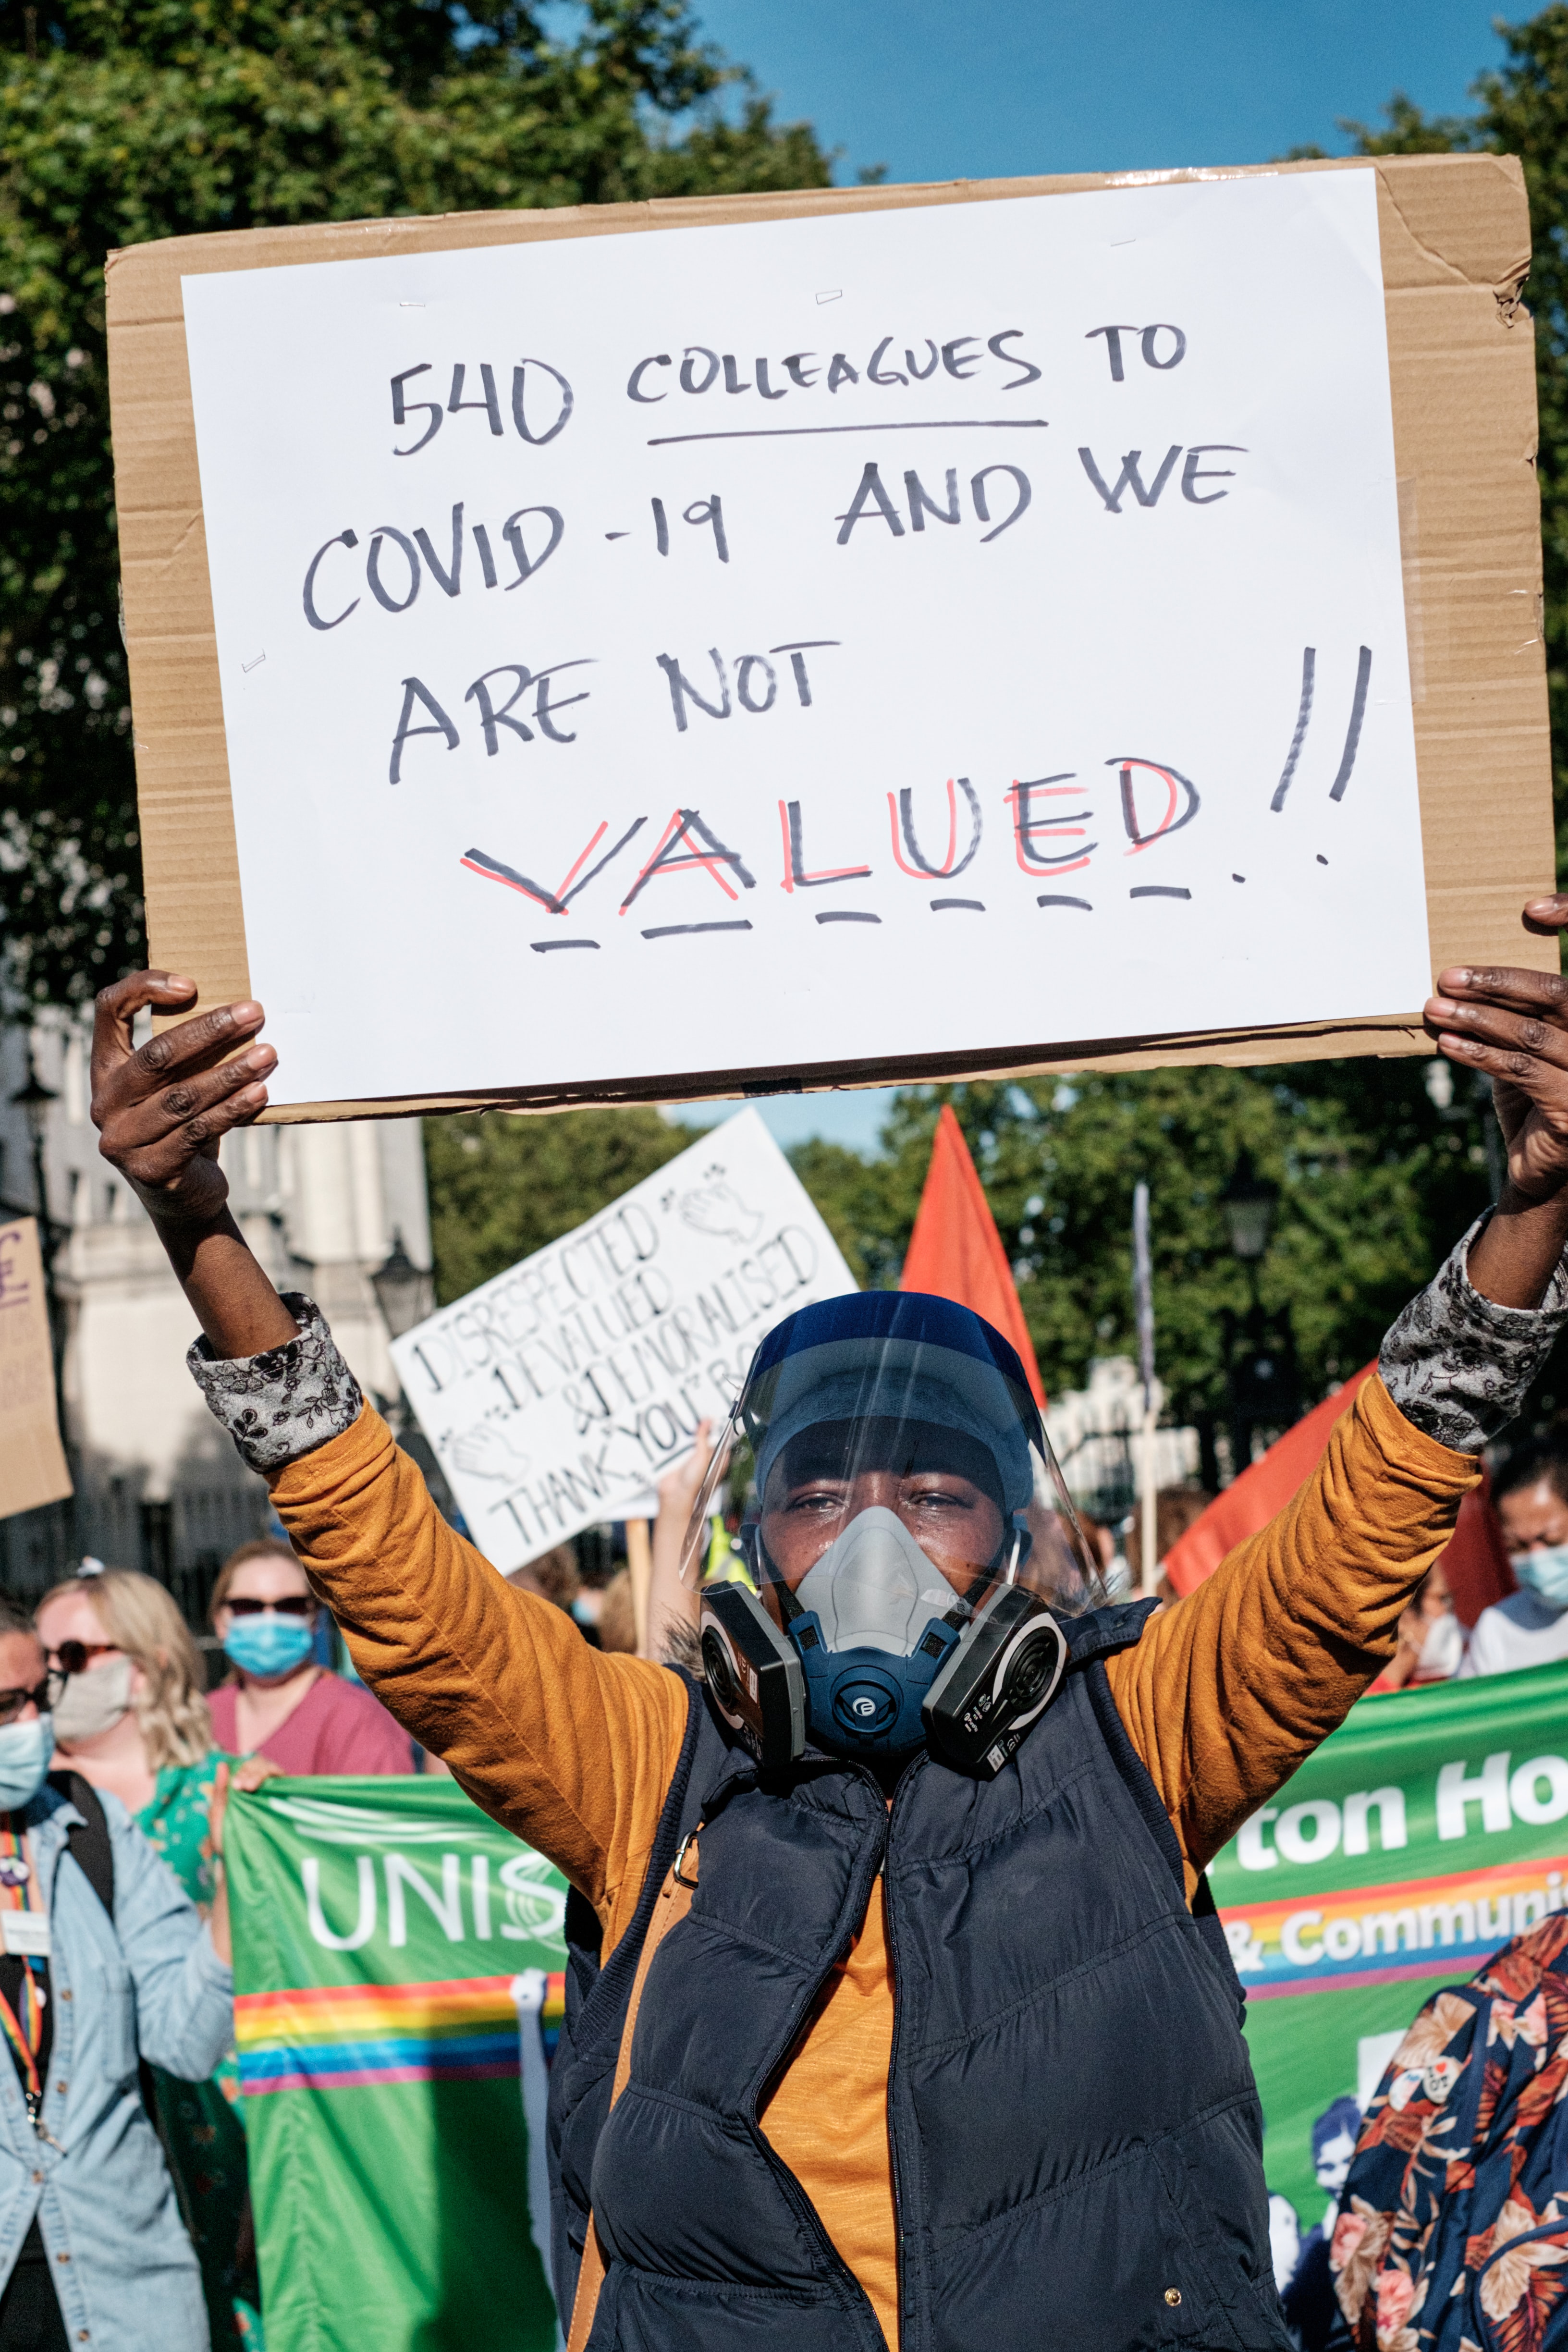 540 COLLEAGUES TO
COVID-19 AND WE
ARE NOT
VALUED!!
DISRESPECTED
DEVALUED
& DEMORALISED
THANK YOU"
UNIS
ton Ho
& Communi